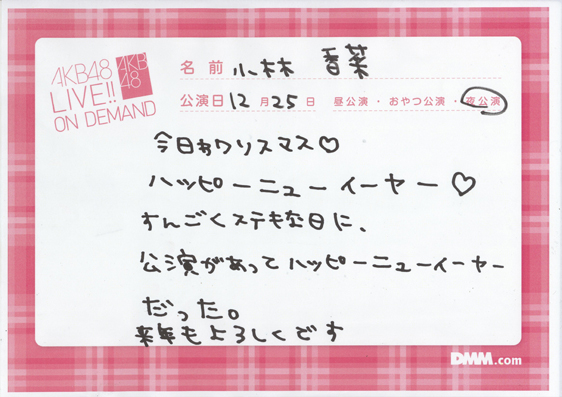 AKB48
LIVE!!
ON DEMAND
AKB
48
名前 小林 香菜
公演日 12月25日 昼公演・おやつ公演・夜公演
今日わクリスマス♡
ハッピーニューイーヤー♡
すんごくステキな日に、
公演があってハッピーニューイーヤー
だった。
来年もよろしくです
DMM.com